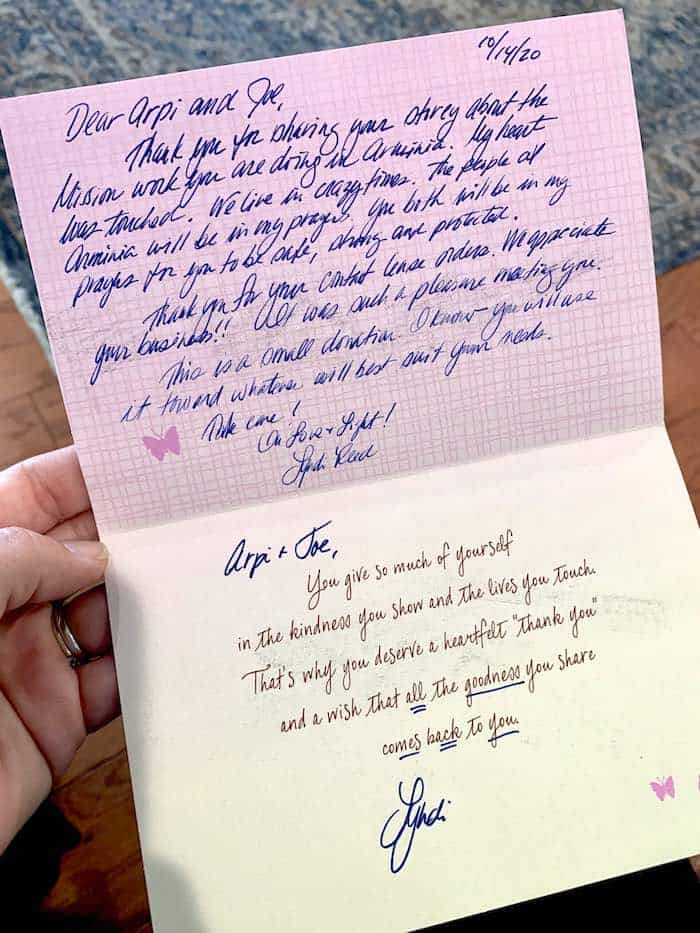 10/14/20
Dear Arpi and Joe,
Thank you for sharing your storey about the
Mission work you are doing in Arminia. My heart
was touched. We live in crazy times. The people of
Arminia will be in my prayers. You both will be in my
prayers for you to be safe, strong and protected.
Thank you for your contact lense orders. We appreciate
your business!! It was such a pleasure meeting you.
This is a small donation. I know you will use
it toward whatever will best suit your needs.
Take care!
In Love & Light!
Lyndi Reed
Arpi + Joe,
You give so much of yourself
in the kindness you show and the lives you touch.
That's why you deserve a heartfelt "thank you"
and a wish that all the goodness you share
comes back to you.
Lyndi